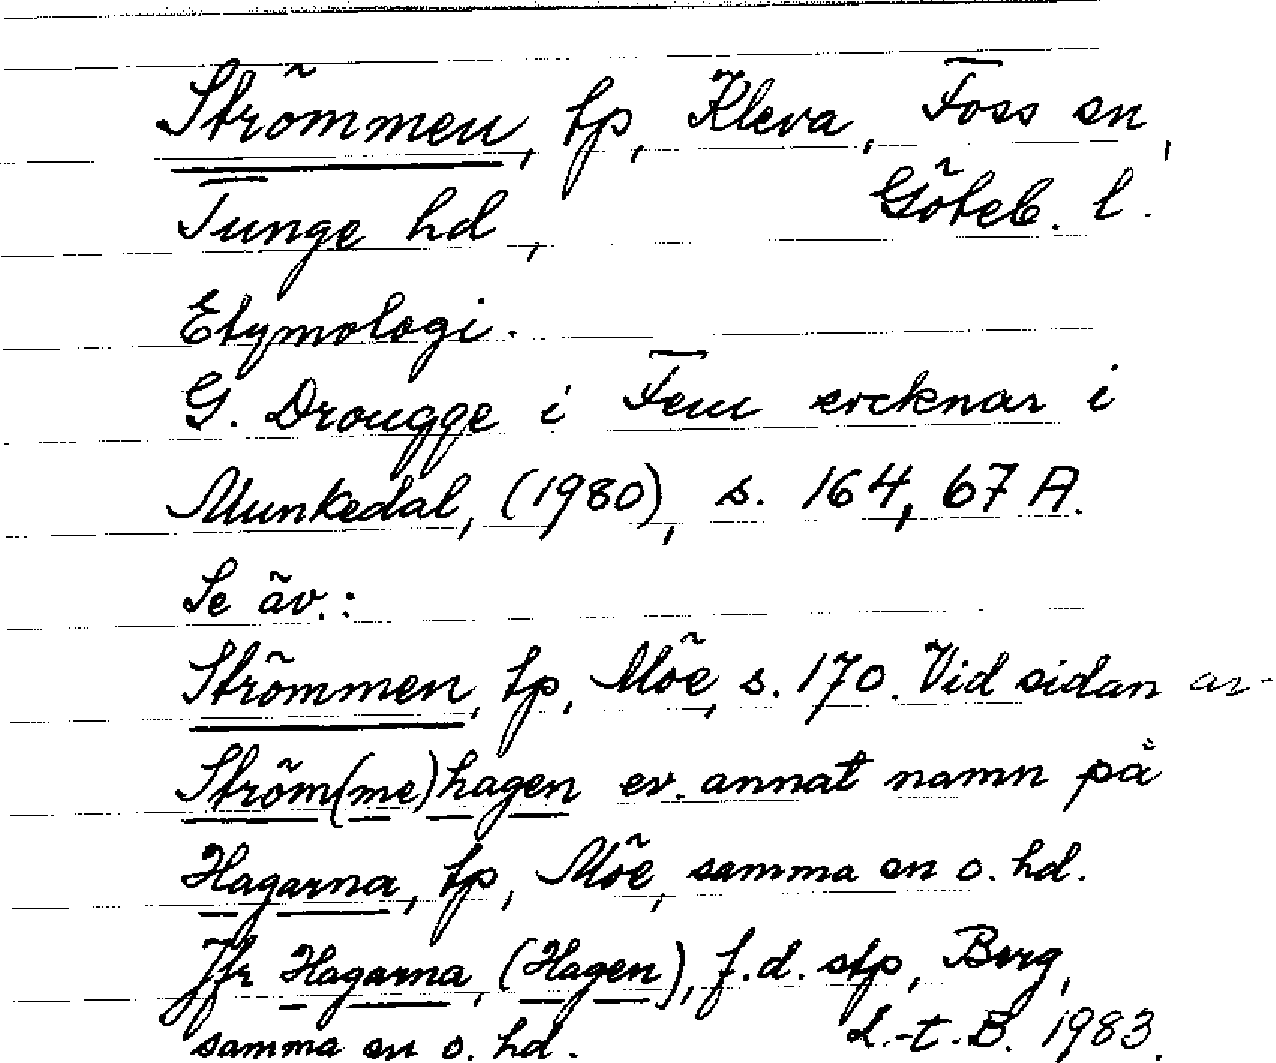 Strömmen, tp, Kleva, Foss sn,
Tunge hd, Göteb. l.
Etymologi.
G. Drougge i Fem socknar i
Munkedal, (1980), s. 164, 67 A.
Se äv.:
Strömmen, tp, Möe, s. 170. Vid sidan av
Ström(me)hagen ev. annat namn på
Hagarna, tp, Möe, samma sn o. hd.
Jfr Hagarna, (Hagen), f.d. stp, Berg,
samma sn o. hd. L.-t. B. 1983.